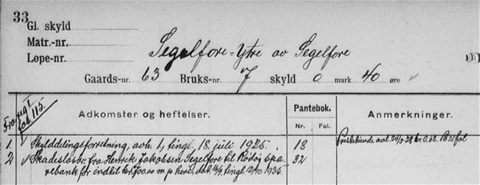 33
Gl. skyld
Matr.-nr.
Løpe-nr.
Segelfore-Ytre av Segelfore
Gaards-nr. 63 Bruks-nr. 7 skyld 0 mark 40 øre
Fra reg. 1 fol. 115.
Adkomster og heftelser.
Pantebok.
Nr. Fol.
Anmerkninger.
1 Skylddelingsforretning, avh. 1, tingl. 18 juli 1925. 18
2 Skadesløsbr. fra Henrik Jakobsen Segelfore til Rödöy Spa-
rebank for indtil kr 700.00 m. p. hest, dat. tingl. 1935. 32